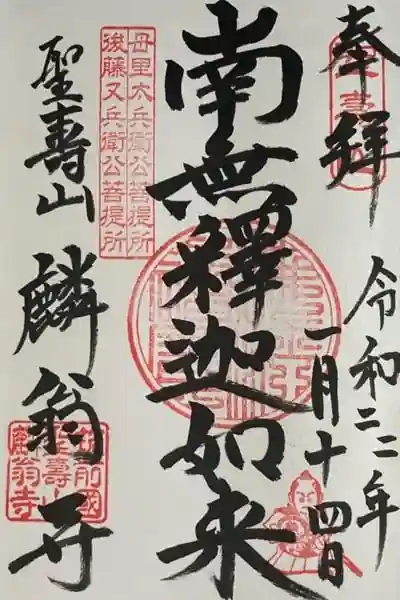 奉拝
令和二二年
一月十四日
南無釋迦如来
母里太兵衛公菩提所
後藤又兵衛公菩提所
聖壽山 麟翁寺
前國
聖壽山
麟翁寺